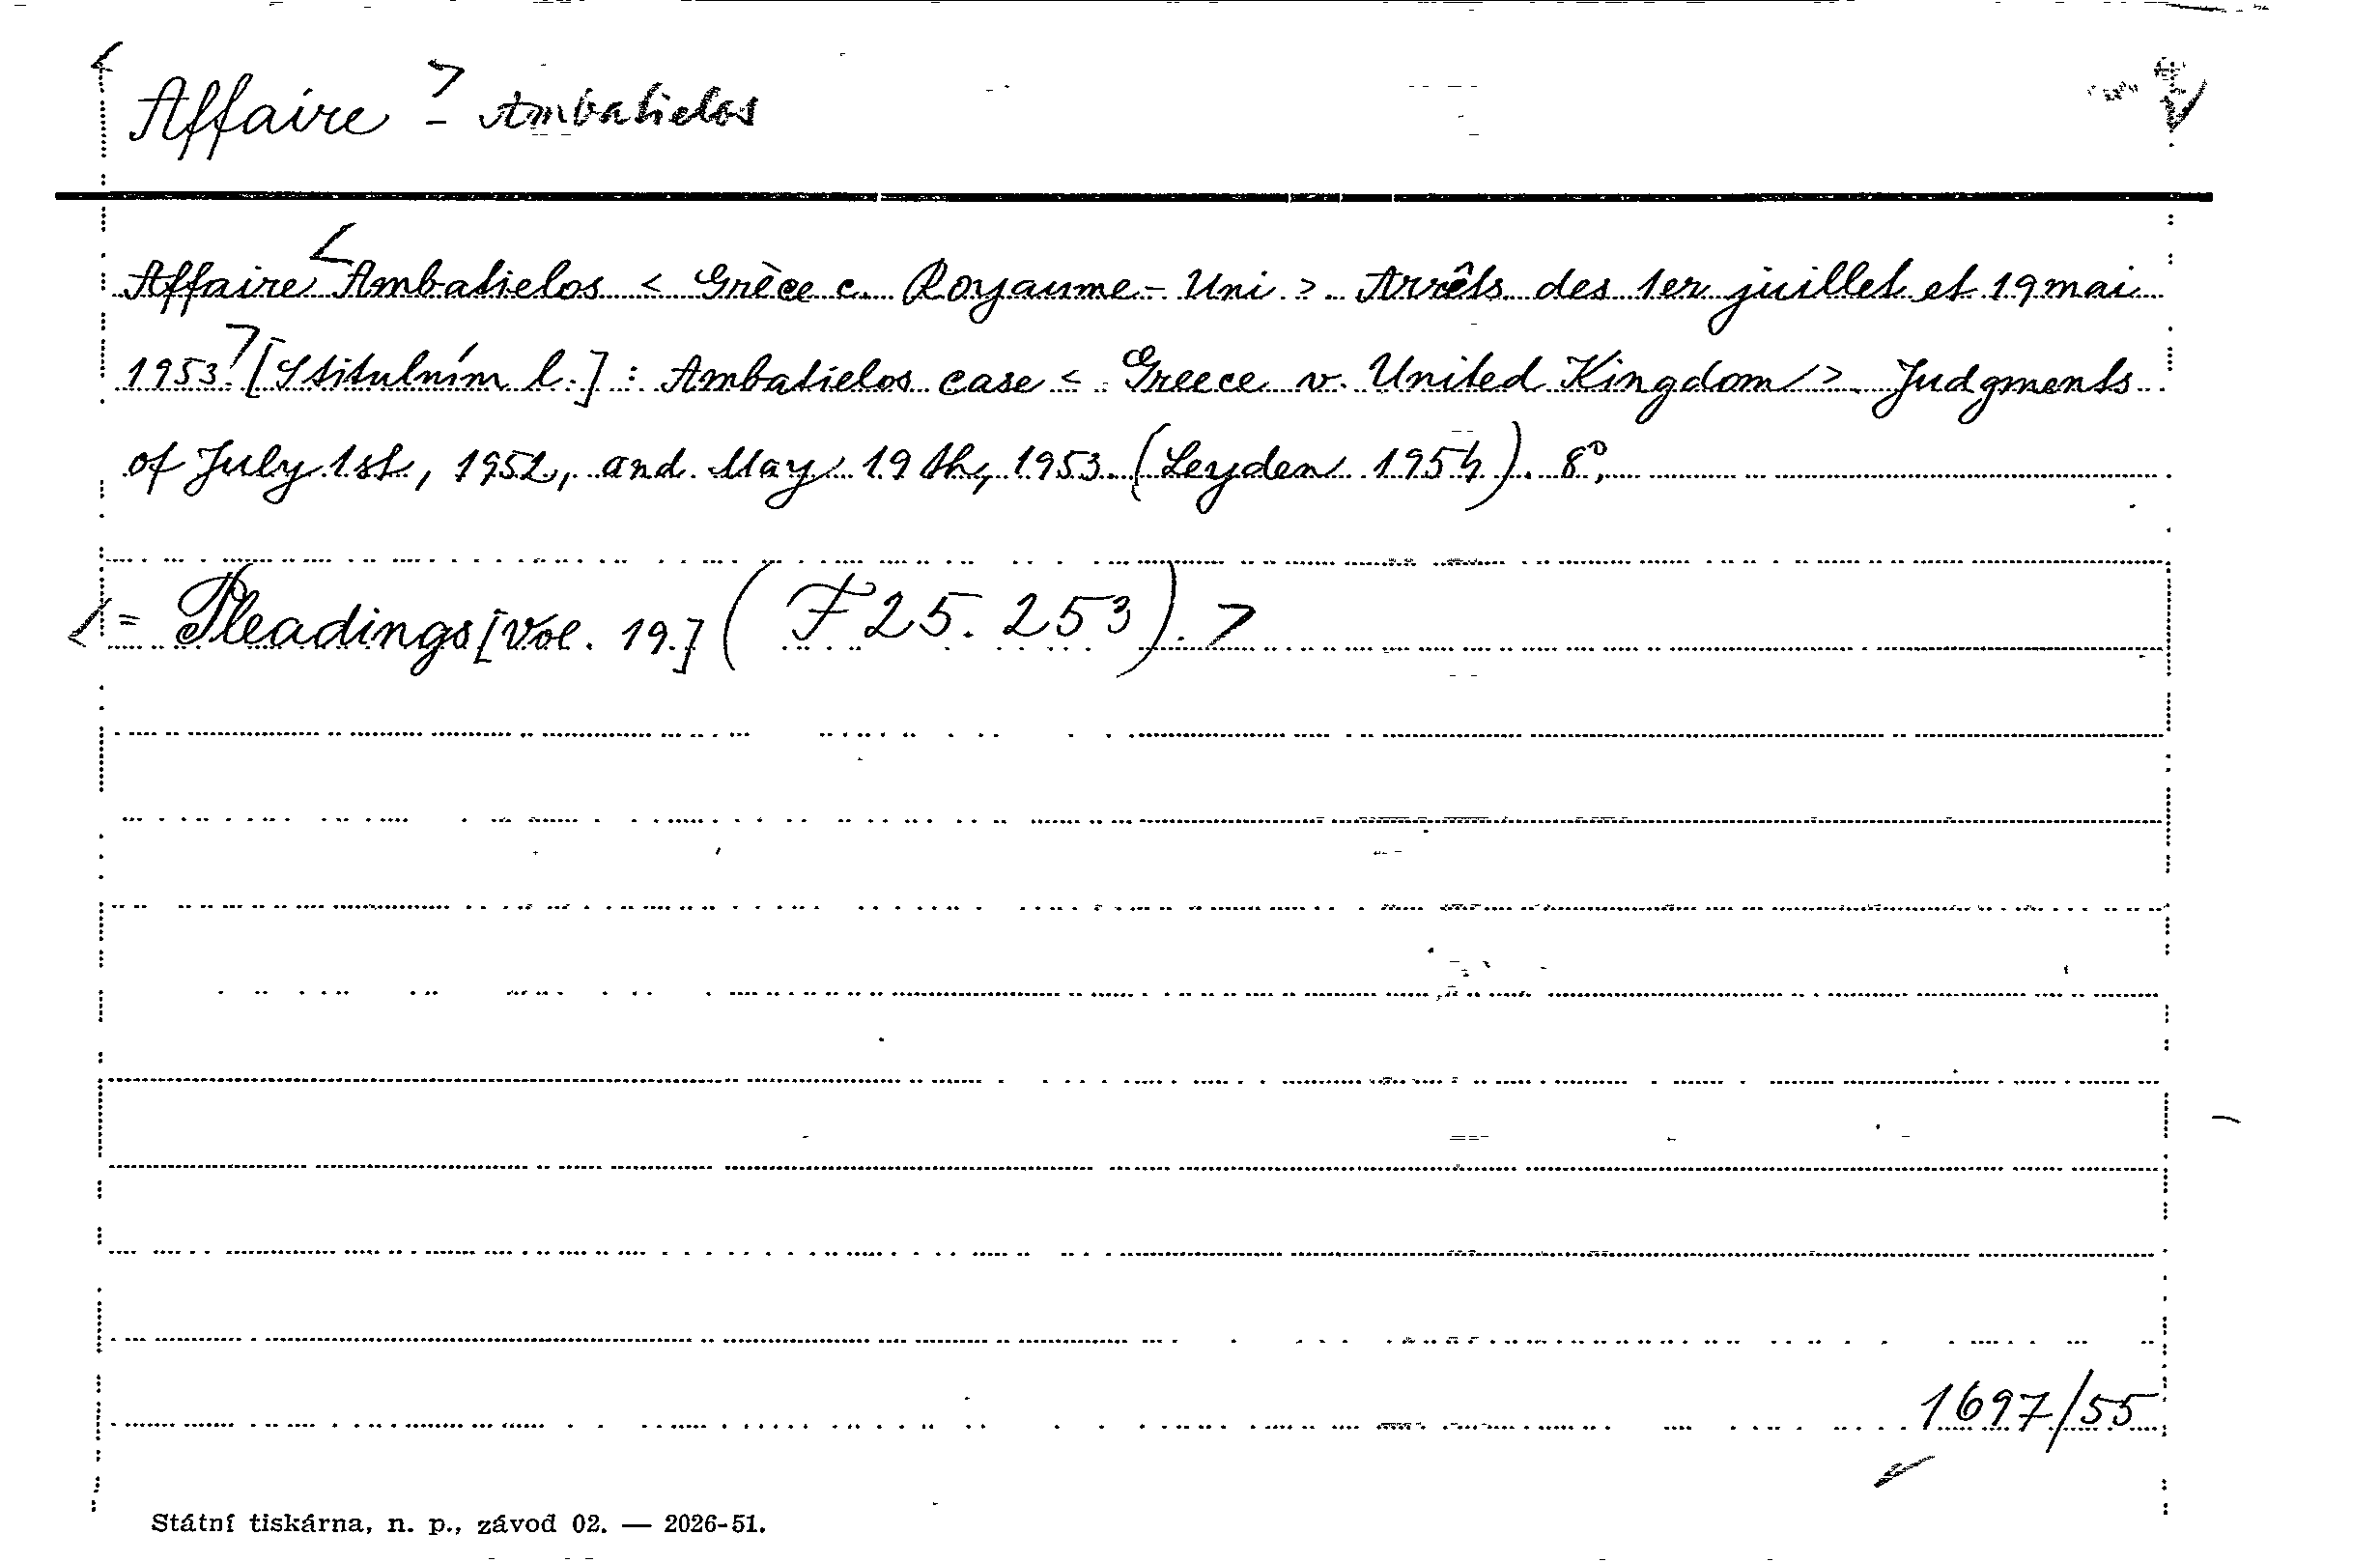 <Affaire> - Ambatielos
Affaire <Ambatielos < Grèce c. Royaume-Uni >. Arrêts des 1er juillet et 19 mai
1953.> [2 titulním l.] : Ambatielos case < Greece v. United Kingdom >. Judgments
of July 1st, 1952, and May 19th, 1953. (Leyden 1954). 8°.
<= Pleadings [Vol. 19.] (F 25.253).>
1697/55
Státní tiskárna, n. p., závod 02. — 2026-51.